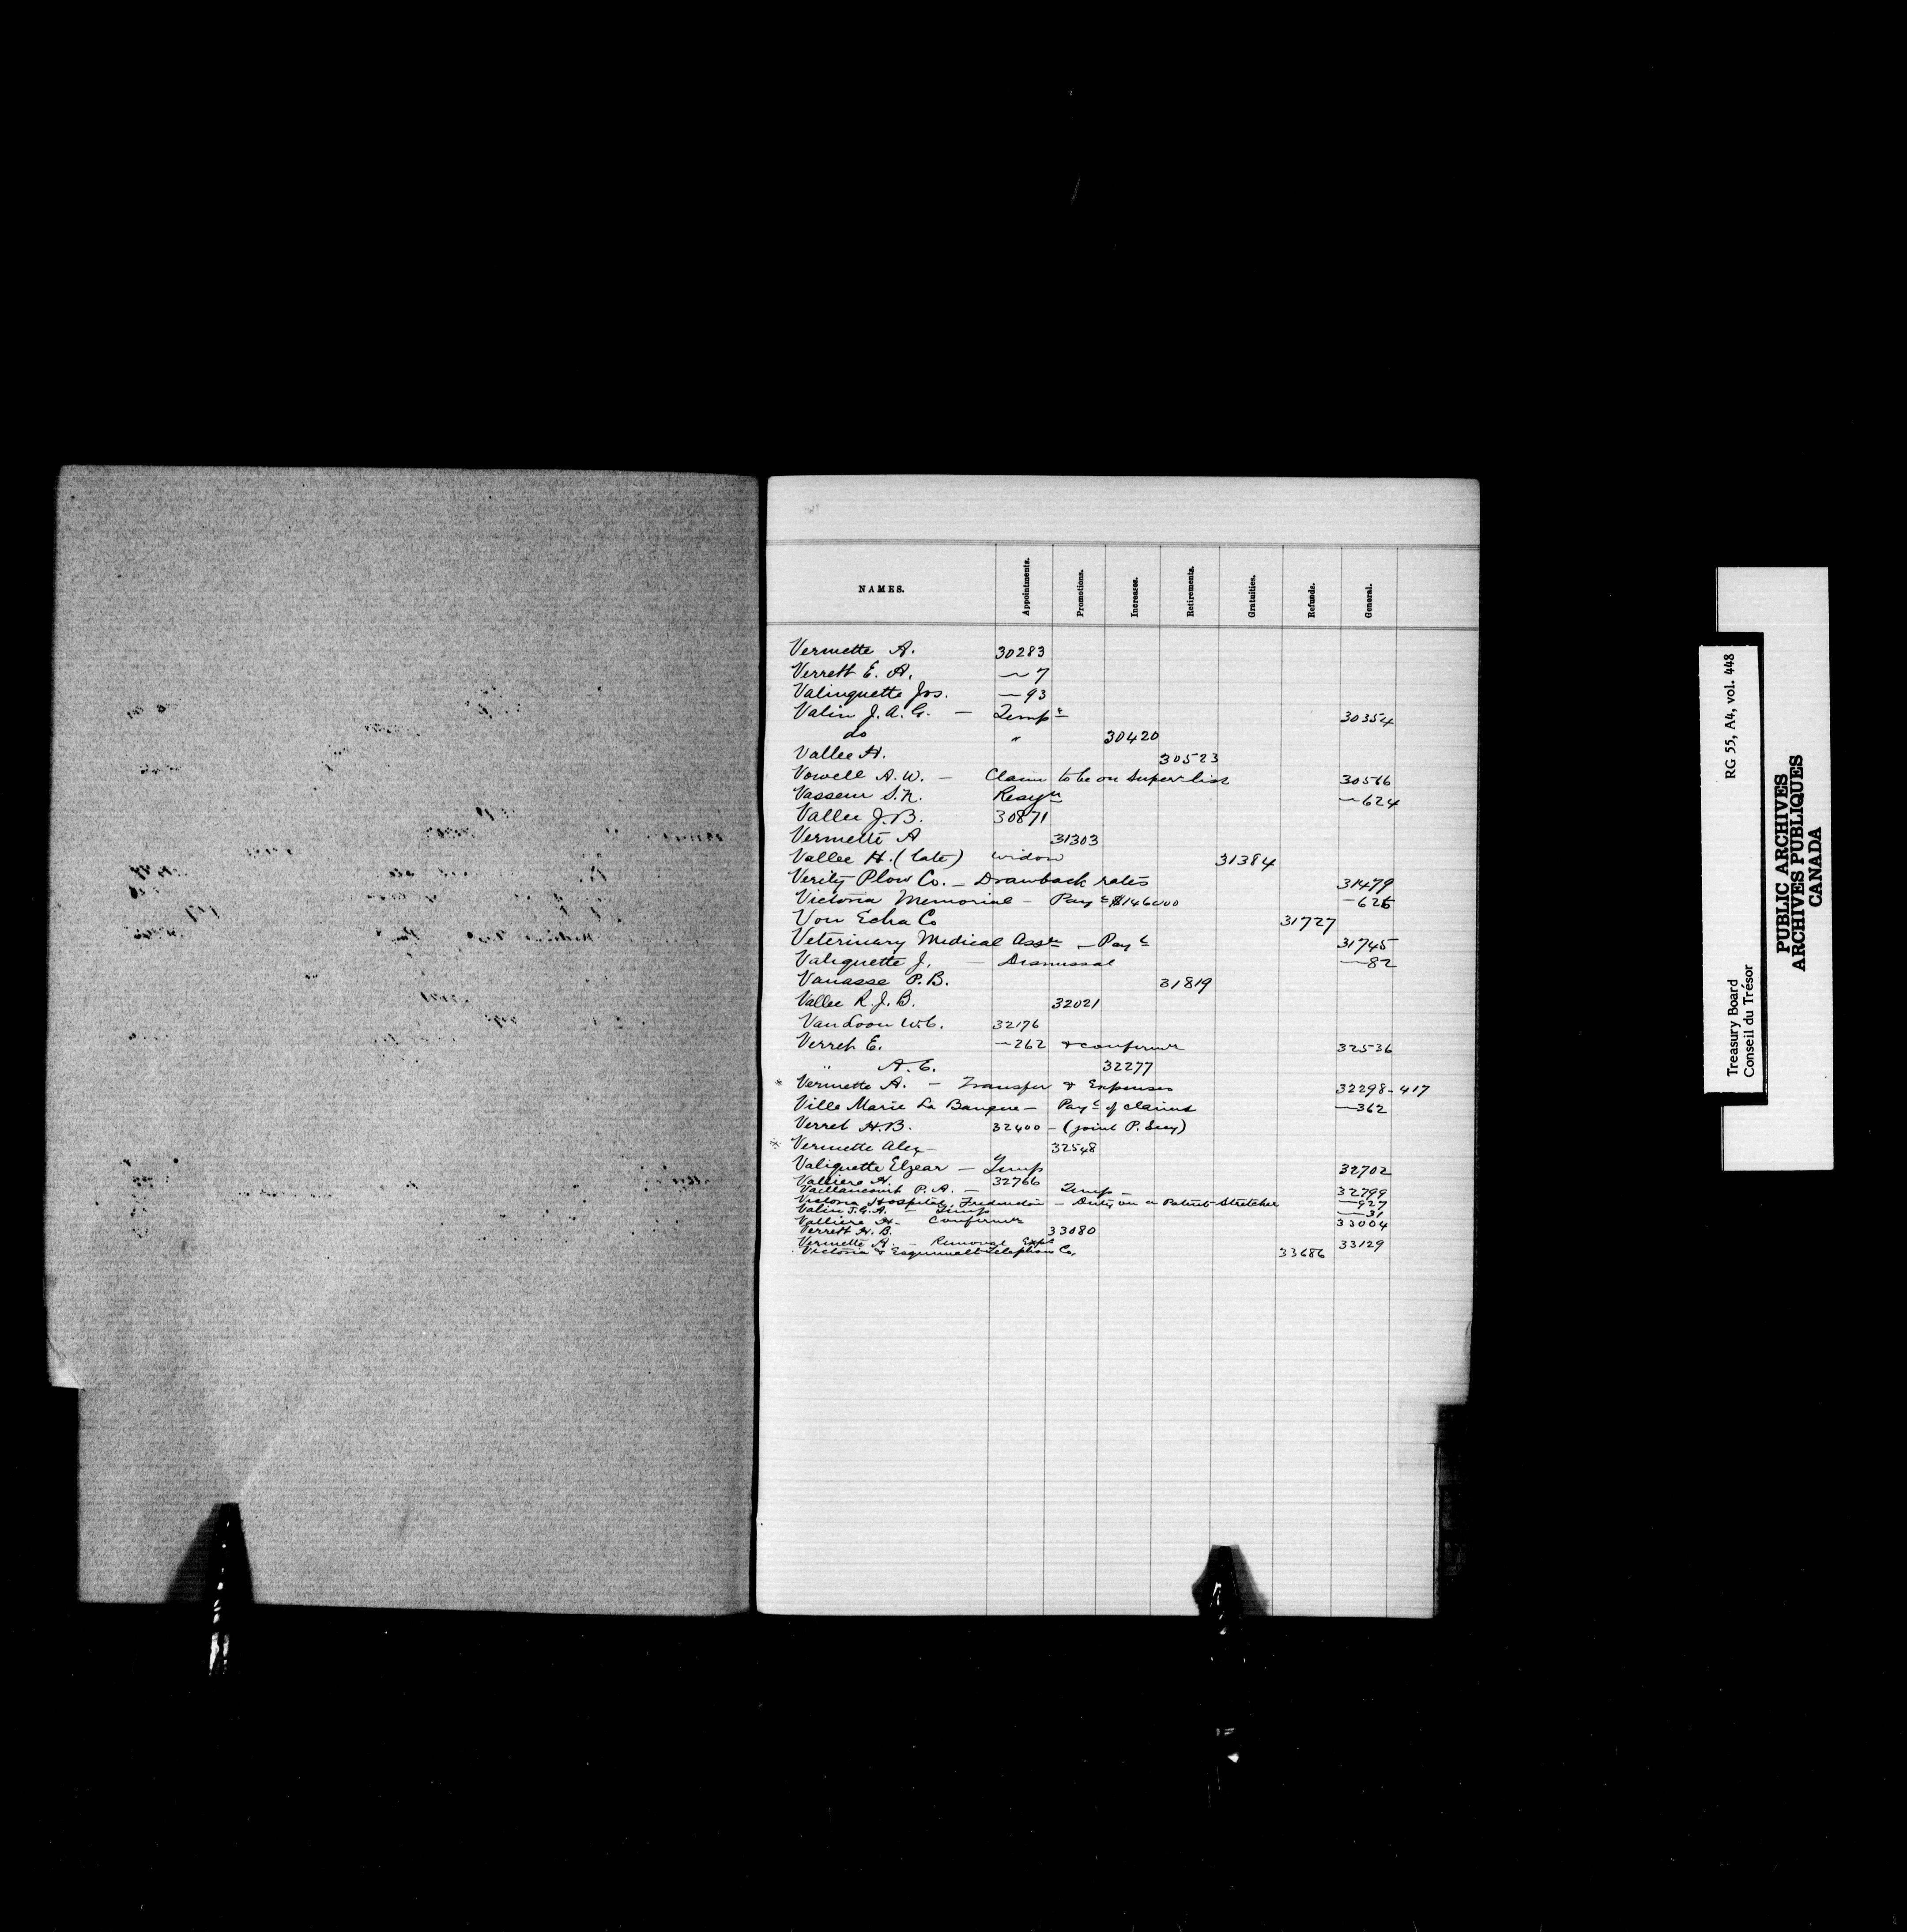 NAMES. Appointments. Promotions. Increases. Retirements. Gratuities. Refunds. General.
Vermette A. 30283
Verrett E. A. — 7
Valinquette Jos. — 93
Valin J. A. G. — Tempy 30354
do " 30420
Vallee H. 30523
Vowell A. W. — Claim to be on Super. list 30566
Vasseur S. N. Resgn — 624
Vallee J. B. 30871
Vermette A 31303
Vallee H. (late) widow 31384
Verity Plow Co. — Drawback rates 31479
Victoria Memorial — Payt $146000 — 626
Von Echa Co 31727
Veterinary Medical Assn — Payt 31745
Valiquette J. — Dismissal — 82
Vanasse P. B. 31819
Vallee R. J. B. 32021
Van Loon W. C. 32176
Verret E. — 262 & confirmn 32536
" A. E. 32277
* Vermette A. — Transfer & Expenses 32298 - 417
Ville Marie La Banque — Payt of claims — 362
Verret H. B. 32400 — (joint P. Secy)
* Vermette Alex 32548
Valiquette Elzear — Temp 32702
Valliere H. 32766
Vaillancourt P. A. — Temp — 32799
Victoria Hospital, Fredericton — Duty on a Patent Stretcher — 927
Valin J. G. A. — Temp — 31
Valliere H — Confirmn 33004
Verrett H. B. 33080
Vermette A. — Removal Exps 33129
Victoria & Esquimalt Telephone Co. 33686
Treasury Board RG 55, A4, vol. 448
Conseil du Trésor
PUBLIC ARCHIVES
ARCHIVES PUBLIQUES
CANADA